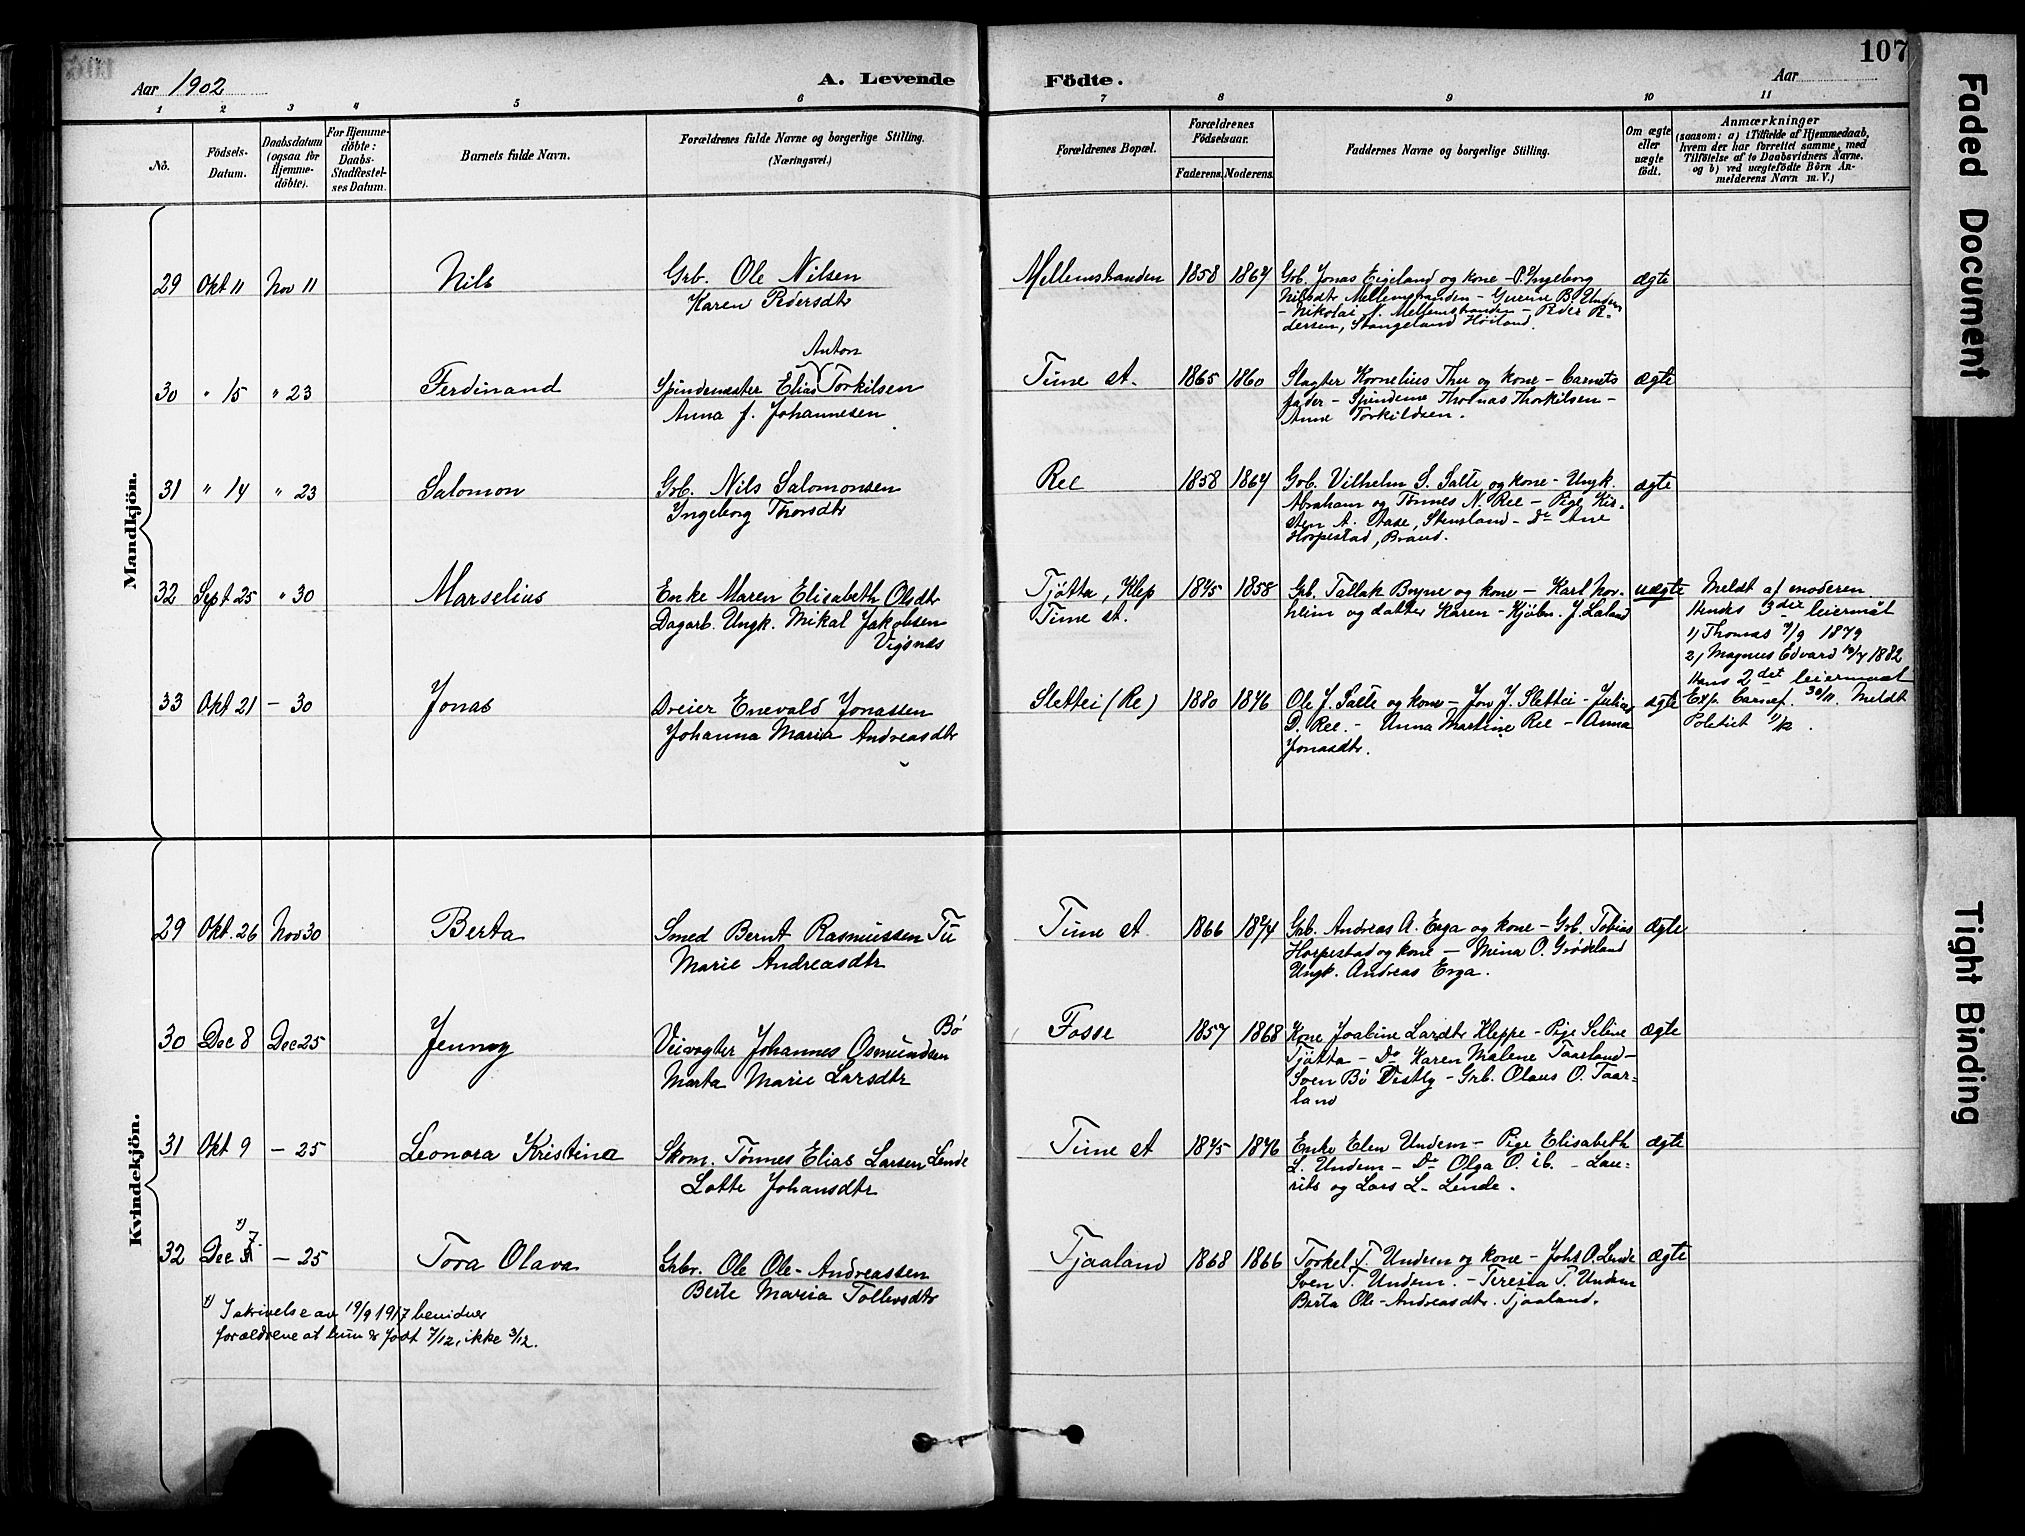 107
Aar 1902
A. Levende Födte.
Aar
1 2 3 4 5 6 7 8 9 10 11
No.
Födsels-Datum.
Daabsdatum (ogsaa for Hjemmedöbte).
For Hjemmedöbte: Daabs-Stadfæstelses Datum.
Barnets fulde Navn.
Forældrenes fulde Navne og borgerlige Stilling.
(Næringsvei.)
Forældrenes Bopæl.
Forældrenes Födselsaar.
Faderens. Moderens.
Faddernes Navne og borgerlige Stilling.
Om ægte eller uægte födt.
Anmærkninger
(saasom: a) i Tilfælde af Hjemmedaab,
hvem der har forrettet samme, med
Tilföielse af to Daabsvidners Navne.
og b) ved uægtefödte Börn Anmelderens Navn m. V.)
Mandkjön.
29 Okt 11 Nov 11 Nils
Grb. Ole Nilsen
Karen Pedersdtr
Mellemstranden 1858 1864
Grb. Jonas Eigeland og kone - P. Ingeborg
Nilsdtr Mellemstranden - Gurine B. Undem
- Nikolai J. Mellemstranden - Peder Pe-
dersen, Stangeland Höiland.
ægte
30 " 15 " 23 Ferdinand
Anton
Spindemester Elias Torkilsen
Anna f. Johannesen
Time st. 1865 1860
Slagter Kornelius Thu og kone - Barnets
fader - Spinderne Thomas Thorkilsen -
Anne Torkildsen.
ægte
31 " 14 " 23 Salomon
Grb. Nils Salomonsen
Ingeborg Thorsdtr
Ree 1858 1864
Grb. Vilhelm S. Salte og kone - Ungk.
Abraham og Tönnes N. Ree - Pige Kir-
sten A. Aase, Stensland - Do Ane
Horpestad, Braud.
ægte
32 Sept 25 " 30 Marselius
Enke Maren Elisabeth Olsdtr
Dagarb. Ungk. Mikal Jakobsen
Vigsnæs
Tjøtta, Klep
Time st.
1845 1858
Grb. Tallak Bryne og kone - Karl Nor-
heim og datter Karen - Kjøbm. J. Laland
uægte
Meldt af moderen
Hendes 3die leiermål
1) Thomas 1879
2) Magnus Edvard 1882
Hans 2det leiermaal
Exp. Barnef. 30/11. Meldt
Politiet
33 Okt 21 - 30 Jonas
Dreier Enevald Jonassen
Johanna Maria Andreasdtr
Slettei (Re) 1880 1876
Ole J. Salte og kone - Jon J. Slettei - Julius
D. Ree - Anna Martine Ree - Anna
Jonasdtr.
ægte
Kvindekjön.
29 Okt. 26 Nov 30 Berta
Smed Bernt Rasmussen Tu
Marie Andreasdtr
Time st 1866 1874
Grb. Andreas A. Erga og kone - Grb. Tobias
Horpestad og kone - Mina O. Grødeland
Ungk. Andreas Erga.
ægte
30 Dec 8 Dec 25 Jenny
Bö
Veivogter Johannes Osmundsen
Marta Marie Larsdtr
Fosse 1857 1868
Kone Joakine Larsdtr Kleppe - Pige Seline
Tjøtta - Do Karen Malene Taarland -
Sven Bö Vestly - Grb. Olaus O. Taar-
land
ægte
31 Okt 9 - 25 Leonora Kristina
Skom. Tønnes Elias Larsen Lende
Lotte Johansdtr
Time st 1875 1876
Enke Elen Undem - Pige Elisabeth
L. Undem - Do Olga O. ib. - Lau-
rits og Lars L. Lende.
ægte
32 Dec 7. - 25 Tora Olava
Gbr. Ole Ole-Andreassen
Berte Maria Tollevsdtr
Tjaaland 1868 1866
Torkel T. Undem og kone - Johs O. Lende
Sven T. Undem. - Teresia T. Undem
Berta Ole-Andreasdtr. Tjaaland.
ægte
x) I skrivelse av 19/9 1917 bevidner
forældrene at hun er født 7/12, ikke 3/12.
Faded Document
Tight Binding